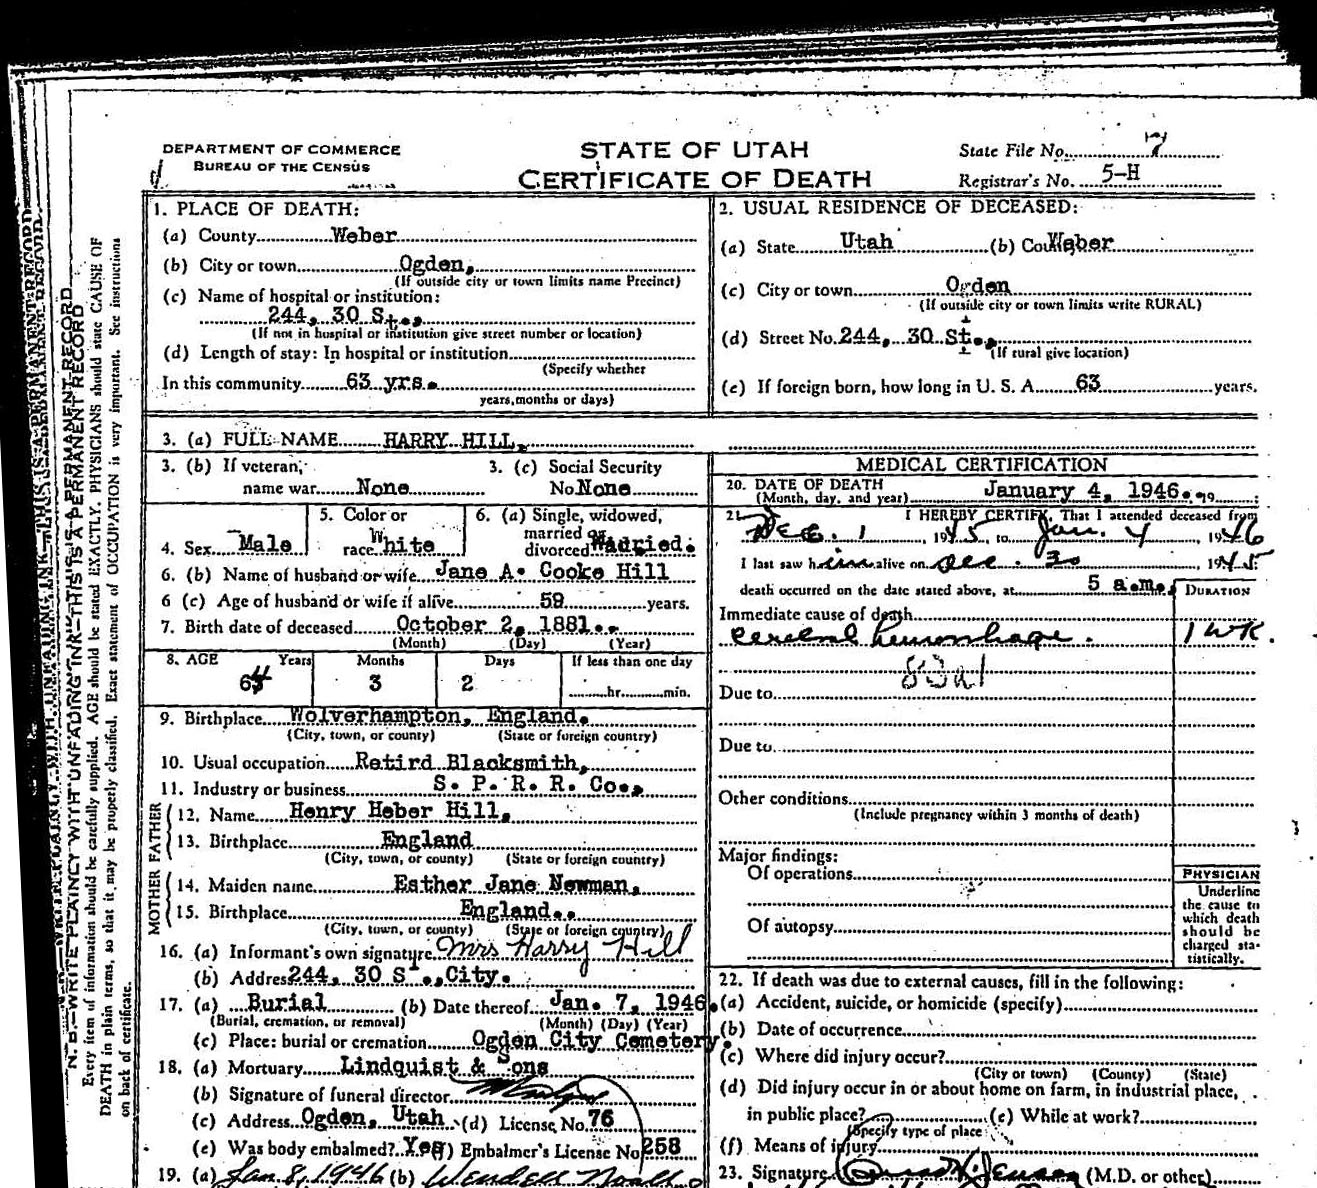 DEPARTMENT OF COMMERCE
BUREAU OF THE CENSUS
STATE OF UTAH
CERTIFICATE OF DEATH
State File No. 7
Registrar's No. 5-H
1. PLACE OF DEATH:
(a) County Weber
(b) City or town Ogden,
(If outside city or town limits name Precinct)
(c) Name of hospital or institution:
244, 30 St.,
(If not in hospital or institution give street number or location)
(d) Length of stay: In hospital or institution
(Specify whether
In this community 63 yrs.
years, months or days)
2. USUAL RESIDENCE OF DECEASED:
(a) State Utah (b) Cou Weber
(c) City or town Ogden
(If outside city or town limits write RURAL)
(d) Street No. 244, 30 St.,
(If rural give location)
(e) If foreign born, how long in U. S. A. 63 years.
3. (a) FULL NAME HARRY HILL,
3. (b) If veteran,
name war None
3. (c) Social Security
No None
4. Sex Male
5. Color or
race White
6. (a) Single, widowed,
married or
divorced
6. (b) Name of husband or wife Jane A. Cooke Hill
6 (c) Age of husband or wife if alive 59 years.
7. Birth date of deceased October 2, 1881..
(Month) (Day) (Year)
8. AGE Years Months Days If less than one day
64 3 2 hr. min.
9. Birthplace Wolverhampton, England.
(City, town, or county) (State or foreign country)
10. Usual occupation Retird Blacksmith,
11. Industry or business S. P. R. R. Co.,
FATHER
12. Name Henry Heber Hill,
13. Birthplace England
(City, town, or county) (State or foreign country)
MOTHER
14. Maiden name Esther Jane Newman,
15. Birthplace England..
(City, town, or county) (State or foreign country)
16. (a) Informant's own signature Mrs Harry Hill
(b) Address 244, 30 St., City.
17. (a) Burial (b) Date thereof Jan. 7, 1946.
(Burial, cremation, or removal) (Month) (Day) (Year)
(c) Place: burial or cremation Ogden City Cemetery.
18. (a) Mortuary Lindquist & Sons
(b) Signature of funeral director
(c) Address Ogden, Utah (d) License No. 76
(e) Was body embalmed? Yes (f) Embalmer's License No 258
19. (a) Jan 8, 1946 (b) Wendell
MEDICAL CERTIFICATION
20. DATE OF DEATH
(Month, day, and year) January 4, 1946. 19 ;
21. I HEREBY CERTIFY, That I attended deceased from
Dec. 1, 1945, to Jan. 4, 1946
I last saw him alive on Dec. 30 1945
death occurred on the date stated above, at 5 a.m.
DURATION
Immediate cause of death
cerebral hemorrhage. 1 WK.
Due to
Due to
Other conditions
(Include pregnancy within 3 months of death)
Major findings:
Of operations
Of autopsy
PHYSICIAN
Underline
the cause to
which death
should be
charged sta-
tistically.
22. If death was due to external causes, fill in the following:
(a) Accident, suicide, or homicide (specify)
(b) Date of occurrence
(c) Where did injury occur?
(City or town) (County) (State)
(d) Did injury occur in or about home on farm, in industrial place,
in public place? (e) While at work?
(Specify type of place)
(f) Means of injury
23. Signature (M.D. or other)
N. B.—WRITE PLAINLY WITH UNFADING INK—THIS IS A PERMANENT RECORD
Every item of information should be carefully supplied. AGE should be stated EXACTLY. PHYSICIANS should state CAUSE OF
DEATH in plain terms, so that it may be properly classified. Exact statement of OCCUPATION is very important. See instructions
on back of certificate.